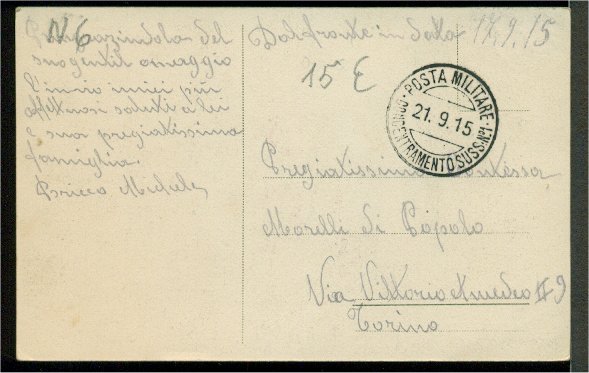 N6
Ringraziandola del
suo gentil omaggio
l'invio miei più
affettuosi saluti a lei
e sua pregiatissima
famighia.
Bricco Michele
Dal fronte in data 17.9.15
15 E
POSTA MILITARE
21.9.15
CONCENTRAMENTO SUSS. N°1
Pregiatissima Contessa
Morelli di Popolo
Via Vittorio Amedeo II 9
Torino